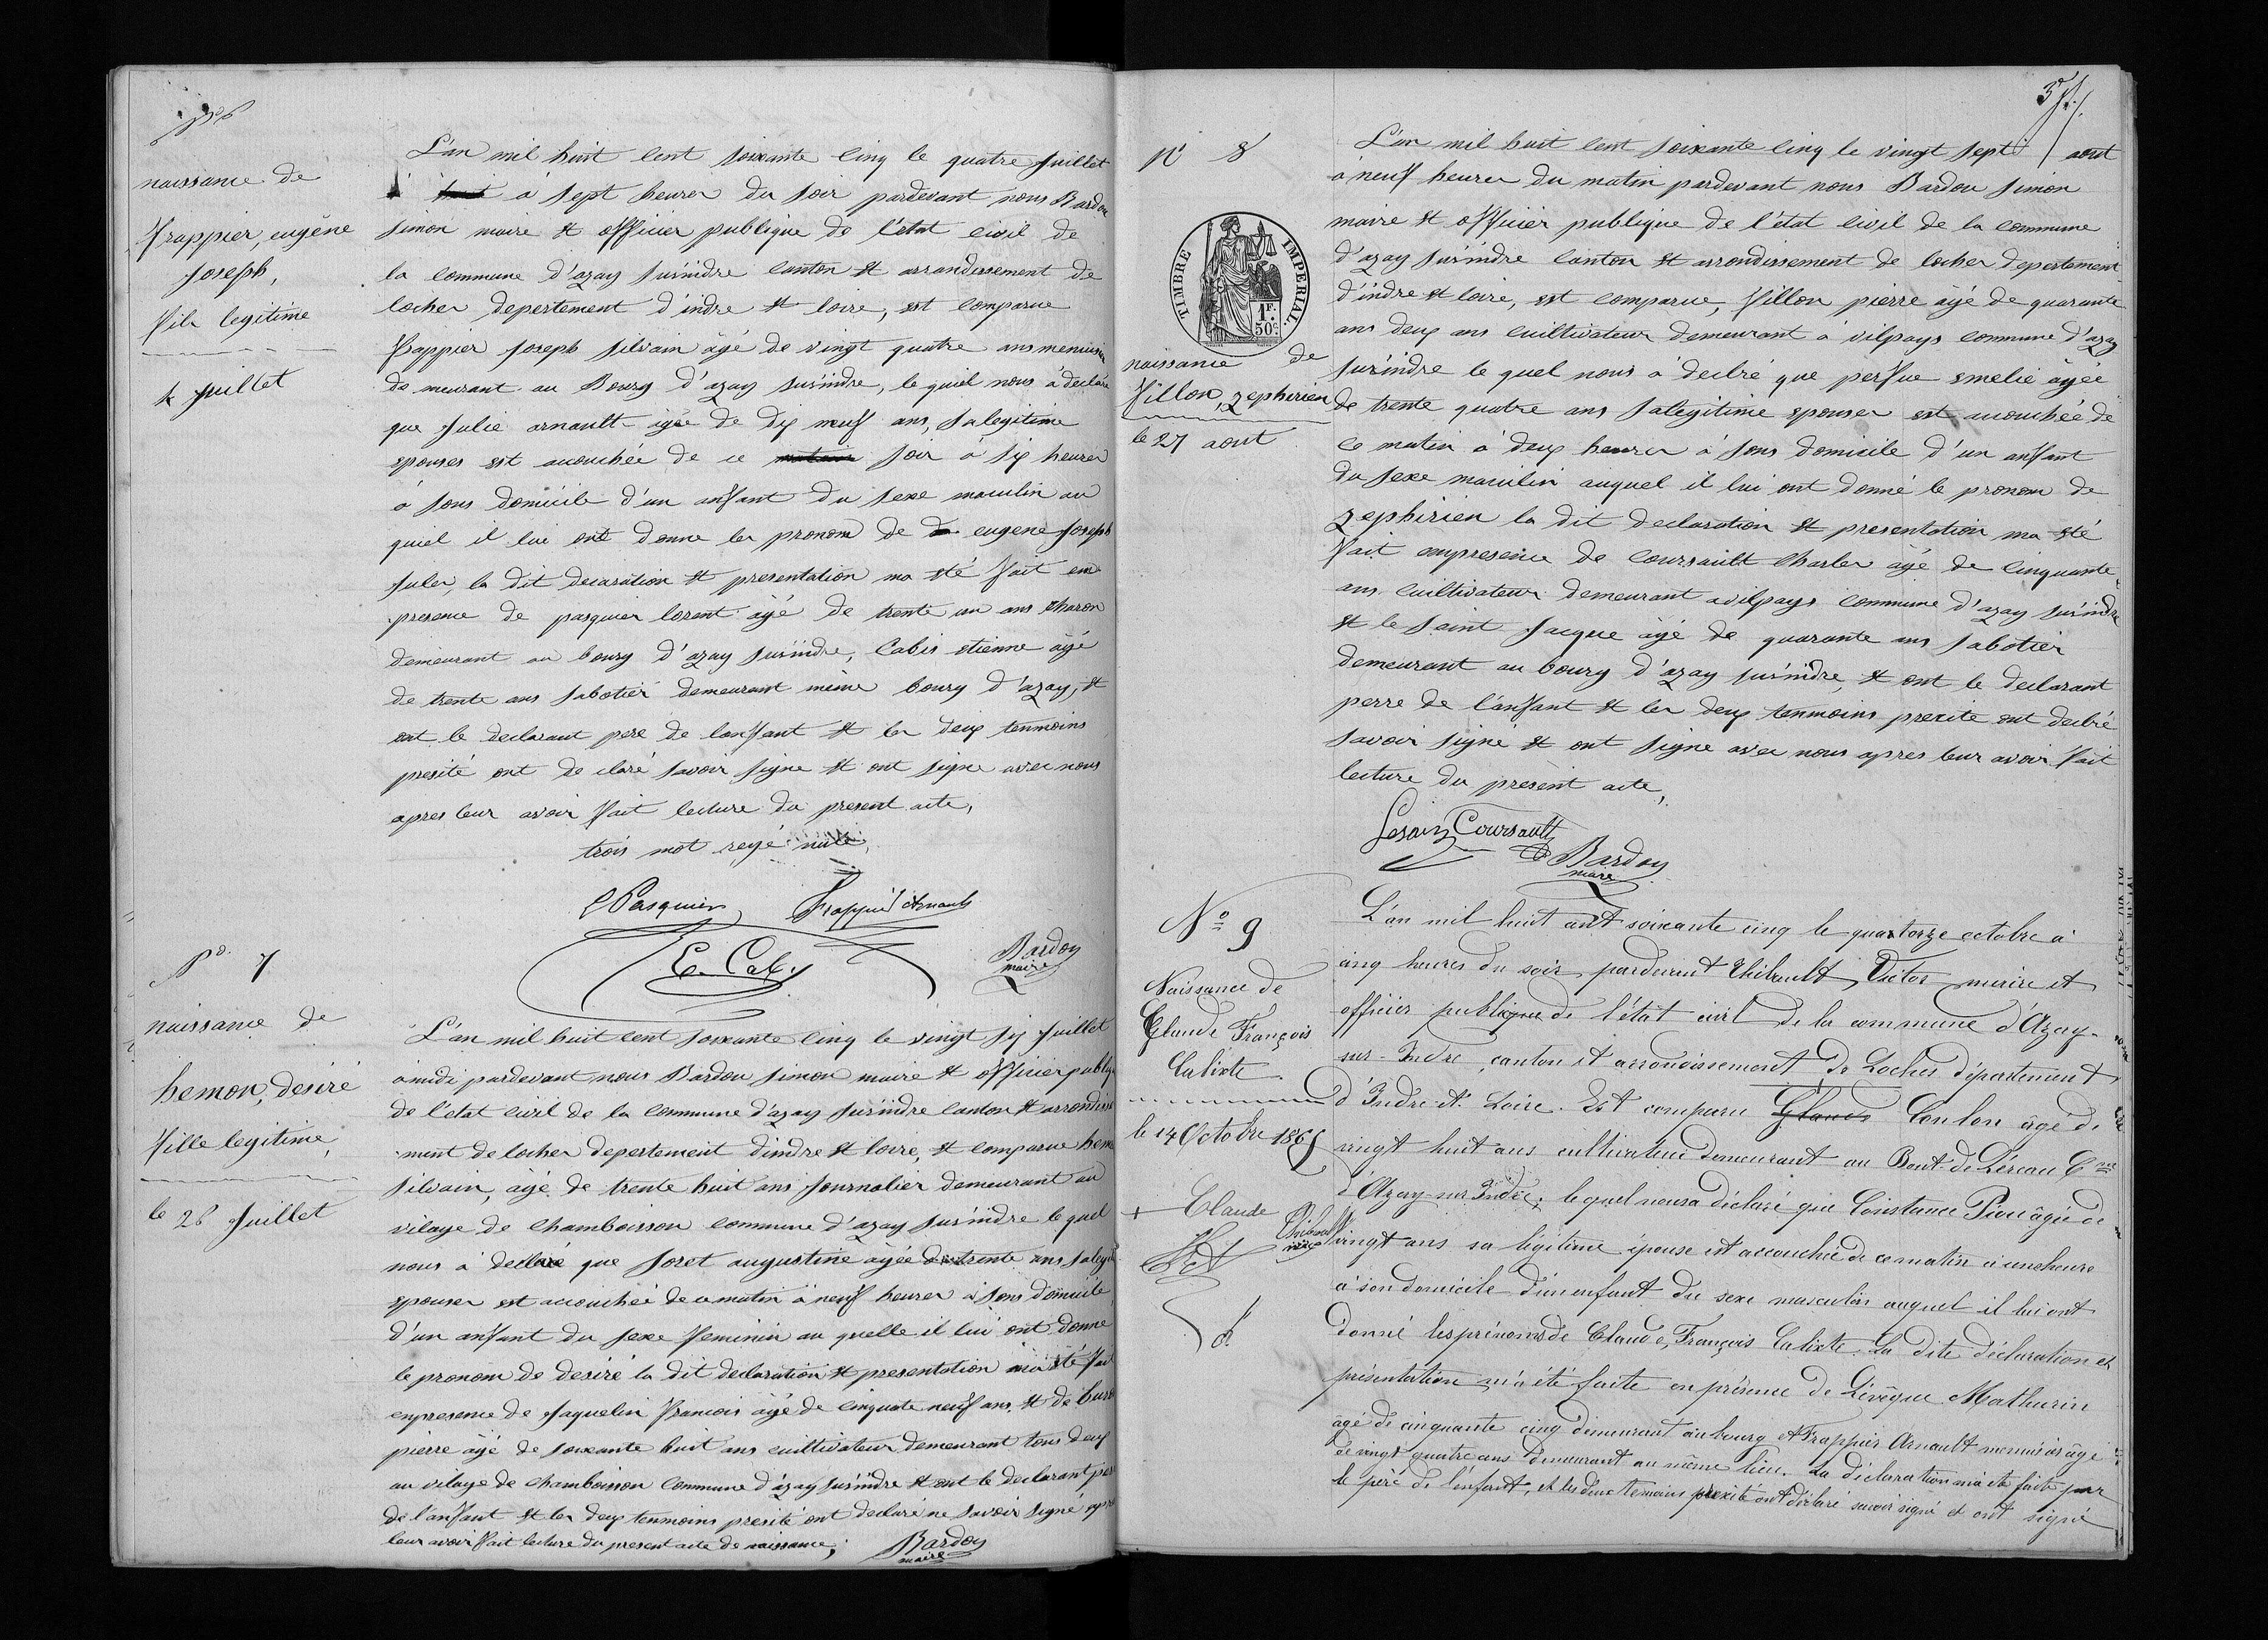 No 6
naissance de
frappier, eugène
joseph,
fils legitime
4 juillet
L'an mil huit cent soixante cinq le quatre juillet
à sept heures du soir pardevant nous Bardou
simon maire et officier publique de l'état civil de
la commune d'azay sur indre canton et arrondissement de
loches depertement d'indre et loire, est comparue
frappier joseph silvain âgé de vingt quatre ans menuisier
demeurant au Bourg d'azay sur indre, le quel nous à declaré
que julie arnault âgée de dix neuf ans, sa legitime
epouses est acouchée de ce matin soir à six heures
à sons domicile d'un anfant du sexe masculin au
quiel il lui ont donne les pronom de eugene joseph
jules, la dit decaration et presentation ma été fait em
presence de pasquier lorent âgé de trente un ans charon
demeurant au bourg d'azay sur indre, Cabis etienne âgé
de trente ans sabotier demeurant même bourg d'azay, et
ont le declarant pere de lanfant et les deux temmoins
presité ont declaré savoir signe et ont signe avec nous
apres leur avoir fait lecture du present acte,
trois mot reyé nulle,
Pasquier frappier Arnault
E. Cabis Bardou
maire
No 7
naissance de
hemon, desiré
fille legitime,
le 26 juillet
L'an mil huit cent soixante cinq le vingt six juillet
à midi pardevant nous Bardou simon maire et officier publiq
de l'état civil de la commune d'azay sur indre canton et arrondisse
ment de loches depertement d'indre et loire, et comparue hemo
silvain, âgé de trente huit ans journalier demeurant au
vilage de chamboisson commune d'azay sur indre le quel
nous à declaré que foret augustine âgée de trente ans sa legit
epouser est acouchée de ce matin à neuf heures à sons domicile
d'un anfant du sexe feminin au quelle il lui ont donne
le pronom de desiré la dit declaration et presentation ma été fait
enpresence de jaquelin francois âgé de cinquate neuf ans, et de
pierre âgé de soixante huit ans cuiltivateur demeurant tous deux
au vilage de chamboisson commune d'azay sur indre et ont le declarant per
de l'anfant et les deux temmoins presité ont declaré ne savoir signé apre
leur avoir fait lecture du present acte de naissance;
Bardou
maire
37
N° 8
TIMBRE IMPERIAL.
1F.
50c.
naissance de
fillon, zephirien
le 27 aout
L'an mil huit cent soixante cinq le vingt sept aout
à neuf heures du matin pardevant nous Bardou simon
maire et officier publique de l'état civil de la commune
d'azay sur indre canton et arrondissement de loches depertement
d'indre et loire, est comparue, fillon pierre âgé de quarante
ans deux ans cuiltivateur demeurant à vilpays commune d'azay
sur indre le quel nous à declré que perfue emelie âgée
de trente quatre ans sa legitime epouser est acouchée de
ce matin à deux heures à sons domicile d'un anfant
du sexe masculin auquel il lui ont donné le pronom de
zephirien la dit declaration et presentation ma été
fait ampresence de coursault Charles âgé de cinquante
ans cuiltivateur demeurant a vilpays commune d'azay sur indre
et le saint jacque âgé de quarante ans sabotier
demeurant au bourg d'azay sur indre, et ont le declarant
perre de l'anfant et les deux temmoins presité ont declré
savoir signé et ont signe avec nous apres leur avoir fait
lecture du présent acte,
Lesain Coursault
Bardou
maire
No 9
Naissance de
Claude François
Calixte
le 14 Octobre 1865
+ Claude
Thibault
L'an mil huit cent soixante cinq le quatorze octobre à
cinq heures du soir, pardevant Thibault, Victor maire et
officier publique de l'état civil de la commune d'Azay-
sur-Indre, canton et arrondissement de Loches département
d'Indre-et-Loire. Est comparu Coulon âgé de
vingt huit ans cultivateur demeurant au Bout de Lereau Cne
d'Azay-sur-Indre, lequel nous a déclaré que Constance Piou âgée de
vingt ans sa légitime épouse est accouchée de ce matin à une heure
à son domicile d'un enfant du sexe masculin auquel il lui ont
donné les prénoms de Claude, François Calixte. La dite déclaration et
présentation m'a été faite en présence de Lévêque Mathurin
âgé de cinquante cinq demeurant au bourg et Frappier Arnault menuisier âgé
de vingt quatre ans demeurant au même lieu. La déclaration m'a été faite par
le père de l'enfant, et les deux temoins presité ont déclaré savoir signé et ont signé